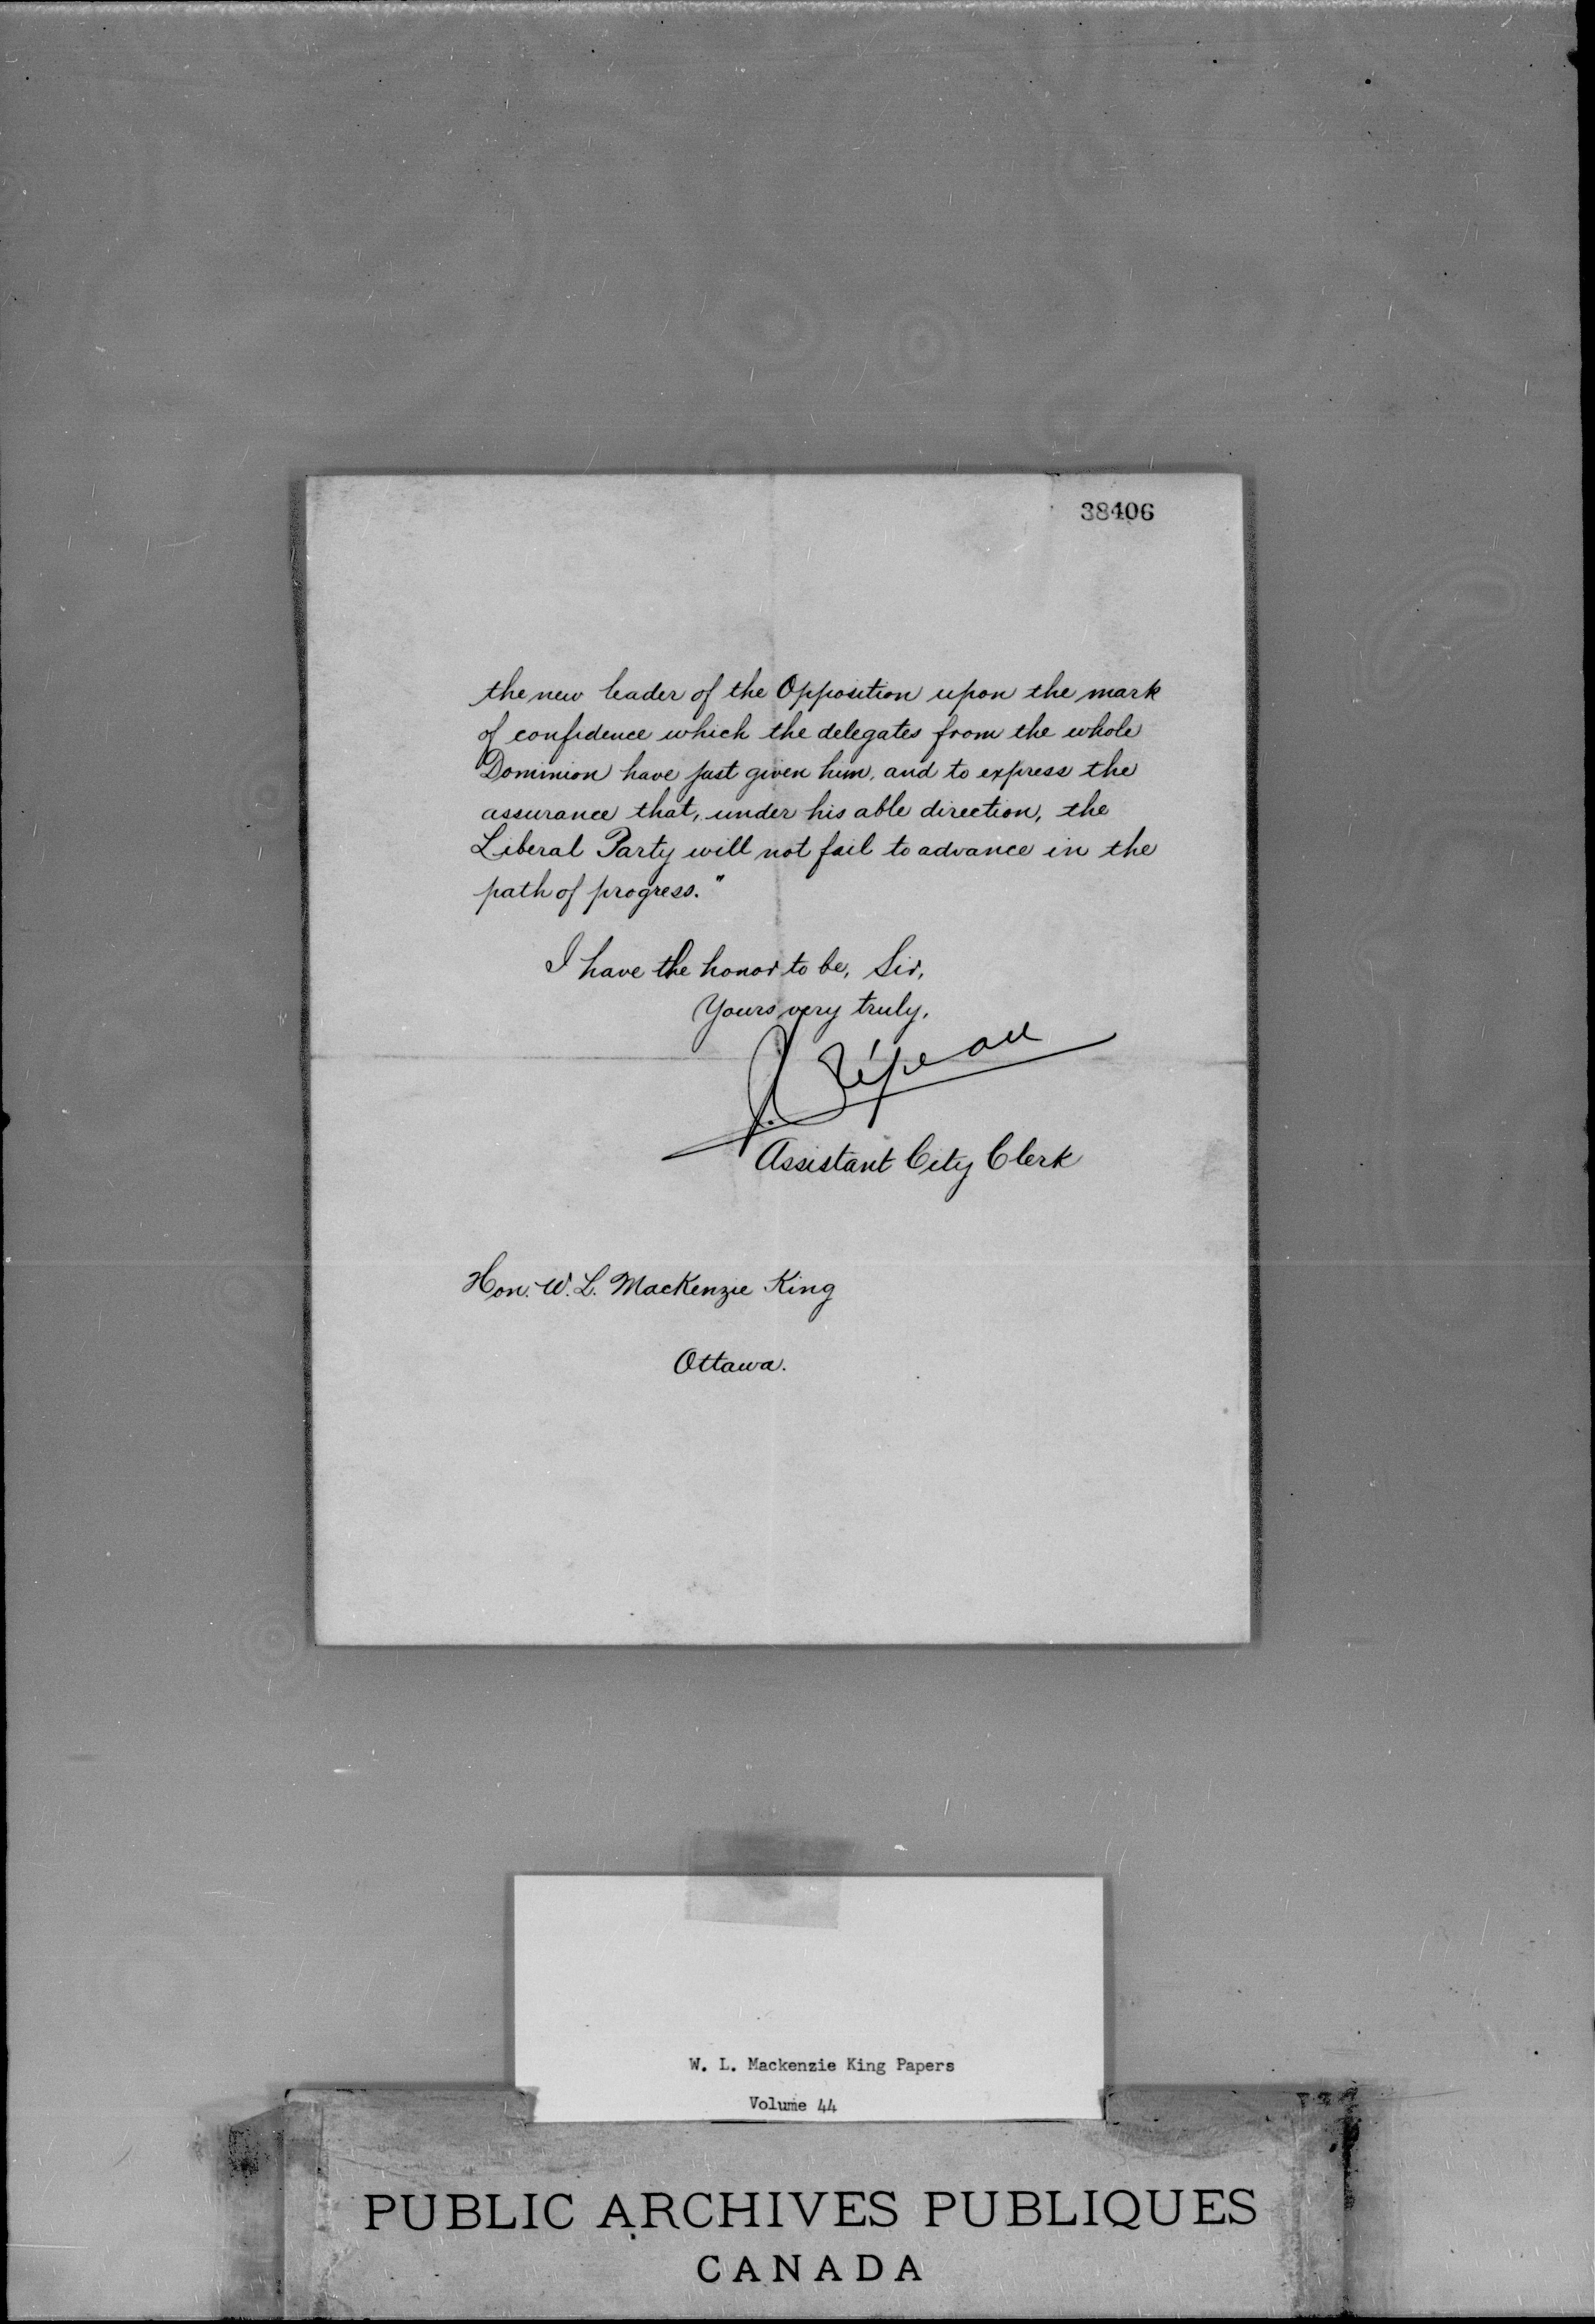 38406
the new leader of the Opposition upon the mark
of confidence which the delegates from the whole
Dominion have just given him, and to express the
assurance that, under his able direction, the
Liberal Party will not fail to advance in the
path of progress."
I have the honor to be, Sir,
Yours very truly,
J.
Assistant City Clerk
Hon. W. L. MacKenzie King
Ottawa.
W. L. Mackenzie King Papers
Volume 44
PUBLIC ARCHIVES PUBLIQUES
CANADA